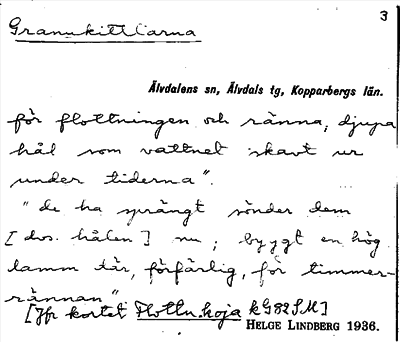 3
Grannkittlarna
Älvdalens sn, Älvdals tg, Kopparbergs län.
för flottningen och ränna, djupa
hål som vattnet skavt ur
under tiderna".
"de ha sprängt sönder dem
[dvs. hålen] nu, byggt en hög
damm där, förfärlig, för timmer-
rännan"
[Jfr kortet Flottn.hoja
HELGE LINDBERG 1936.